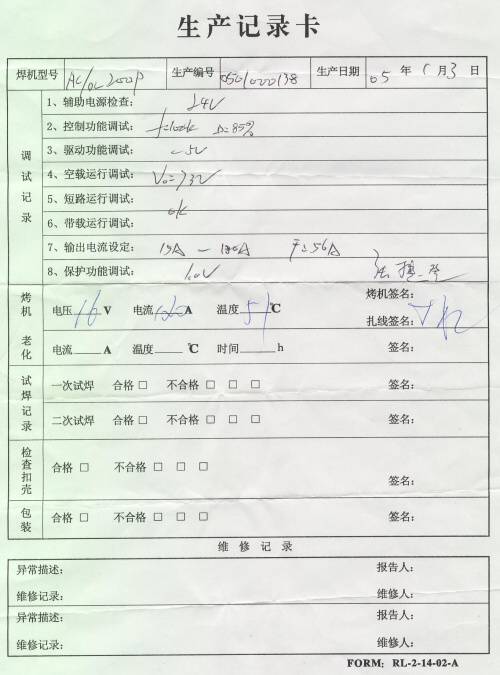 生产记录卡
焊机型号 AC/DC200P 生产编号 0501000138 生产日期 05 年 1 月 3 日
调试记录
1、辅助电源检查： 24V
2、控制功能调试： f=100k D=85%
3、驱动功能调试： -5V
4、空载运行调试： V0=73V
5、短路运行调试： ok
6、带载运行调试：
7、输出电流设定： 15A — 180A F=56A
8、保护功能调试： 1.0V
烤机 老化
电压 16 V 电流 120 A 温度 51 ℃ 烤机签名：
扎线签名：
电流 A 温度 ℃ 时间 h 签名：
试焊记录
一次试焊 合格 □ 不合格 □ □ □ 签名：
二次试焊 合格 □ 不合格 □ □ □ 签名：
检查扣壳
合格 □ 不合格 □ □ □
签名：
包装
合格 □ 不合格 □ □ □ 签名：
维修记录
异常描述： 报告人：
维修记录： 维修人：
异常描述： 报告人：
维修记录： 维修人：
FORM: RL-2-14-02-A